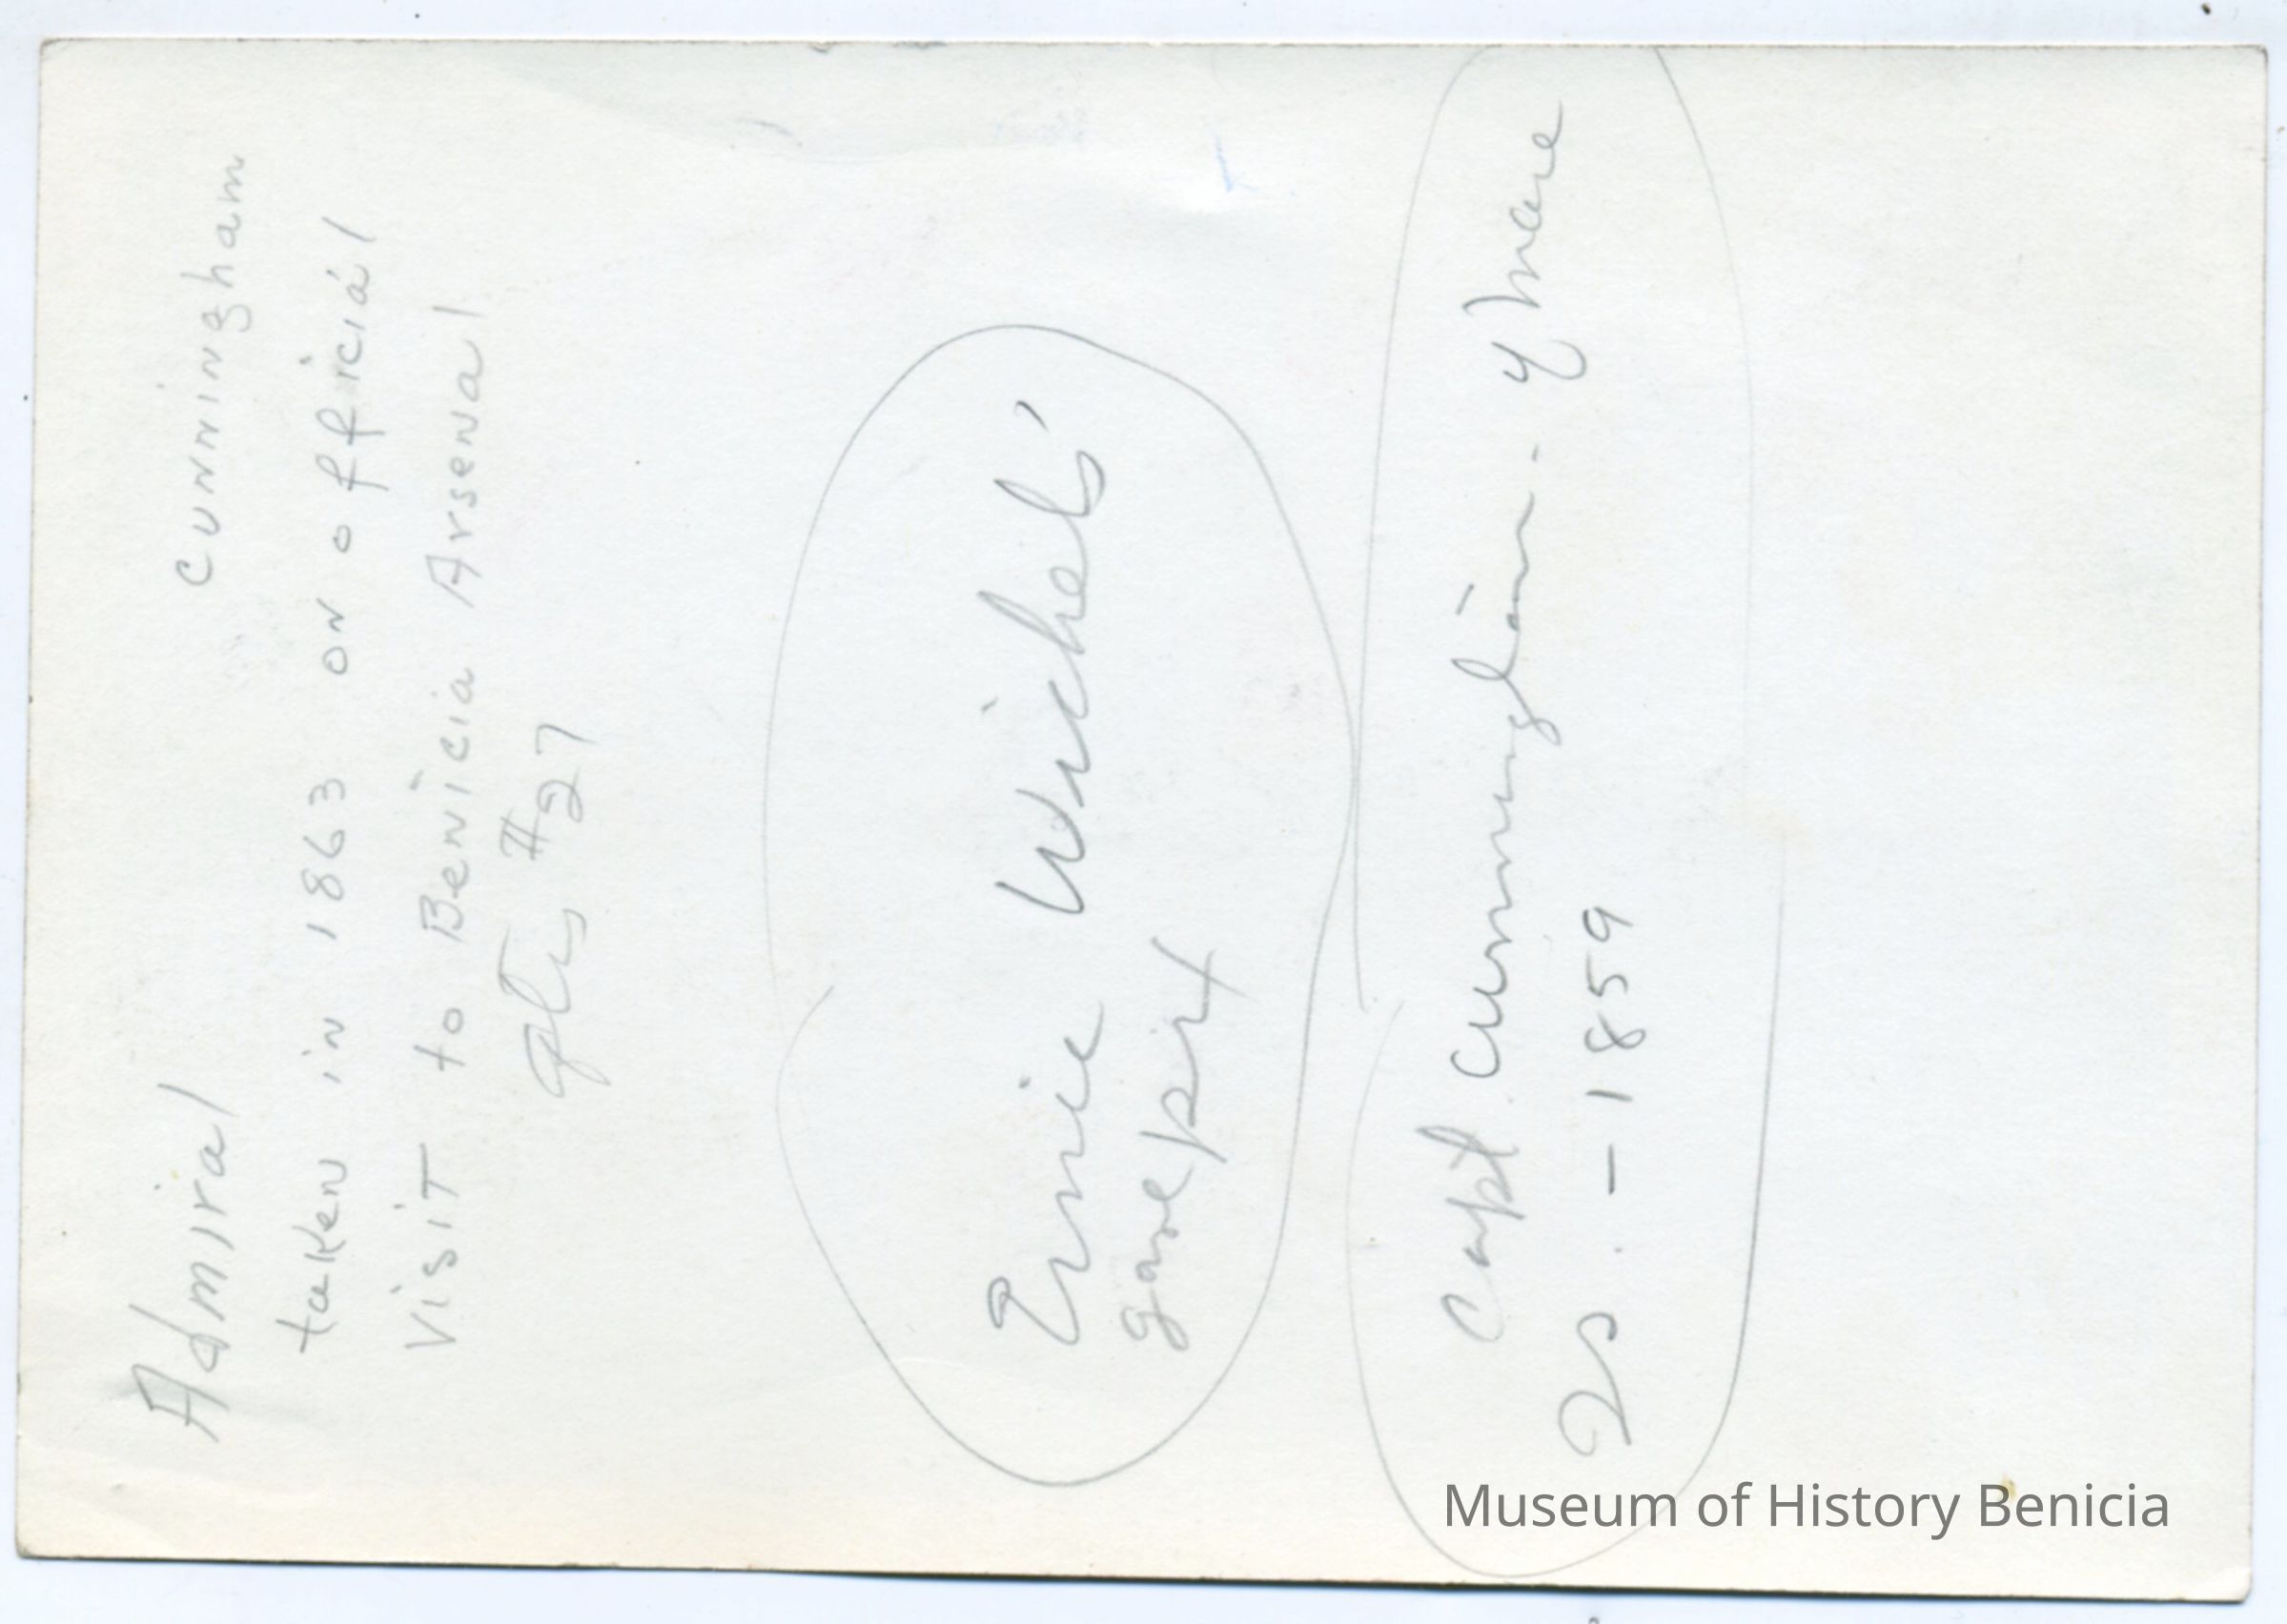 Admiral Cunningham
taken in 1863 on official
visit to Benicia Arsenal
qtrs #27
Ernie Wichels'
gave pix
Capt Cunningham - of Mare
Is. - 1859
Museum of History Benicia